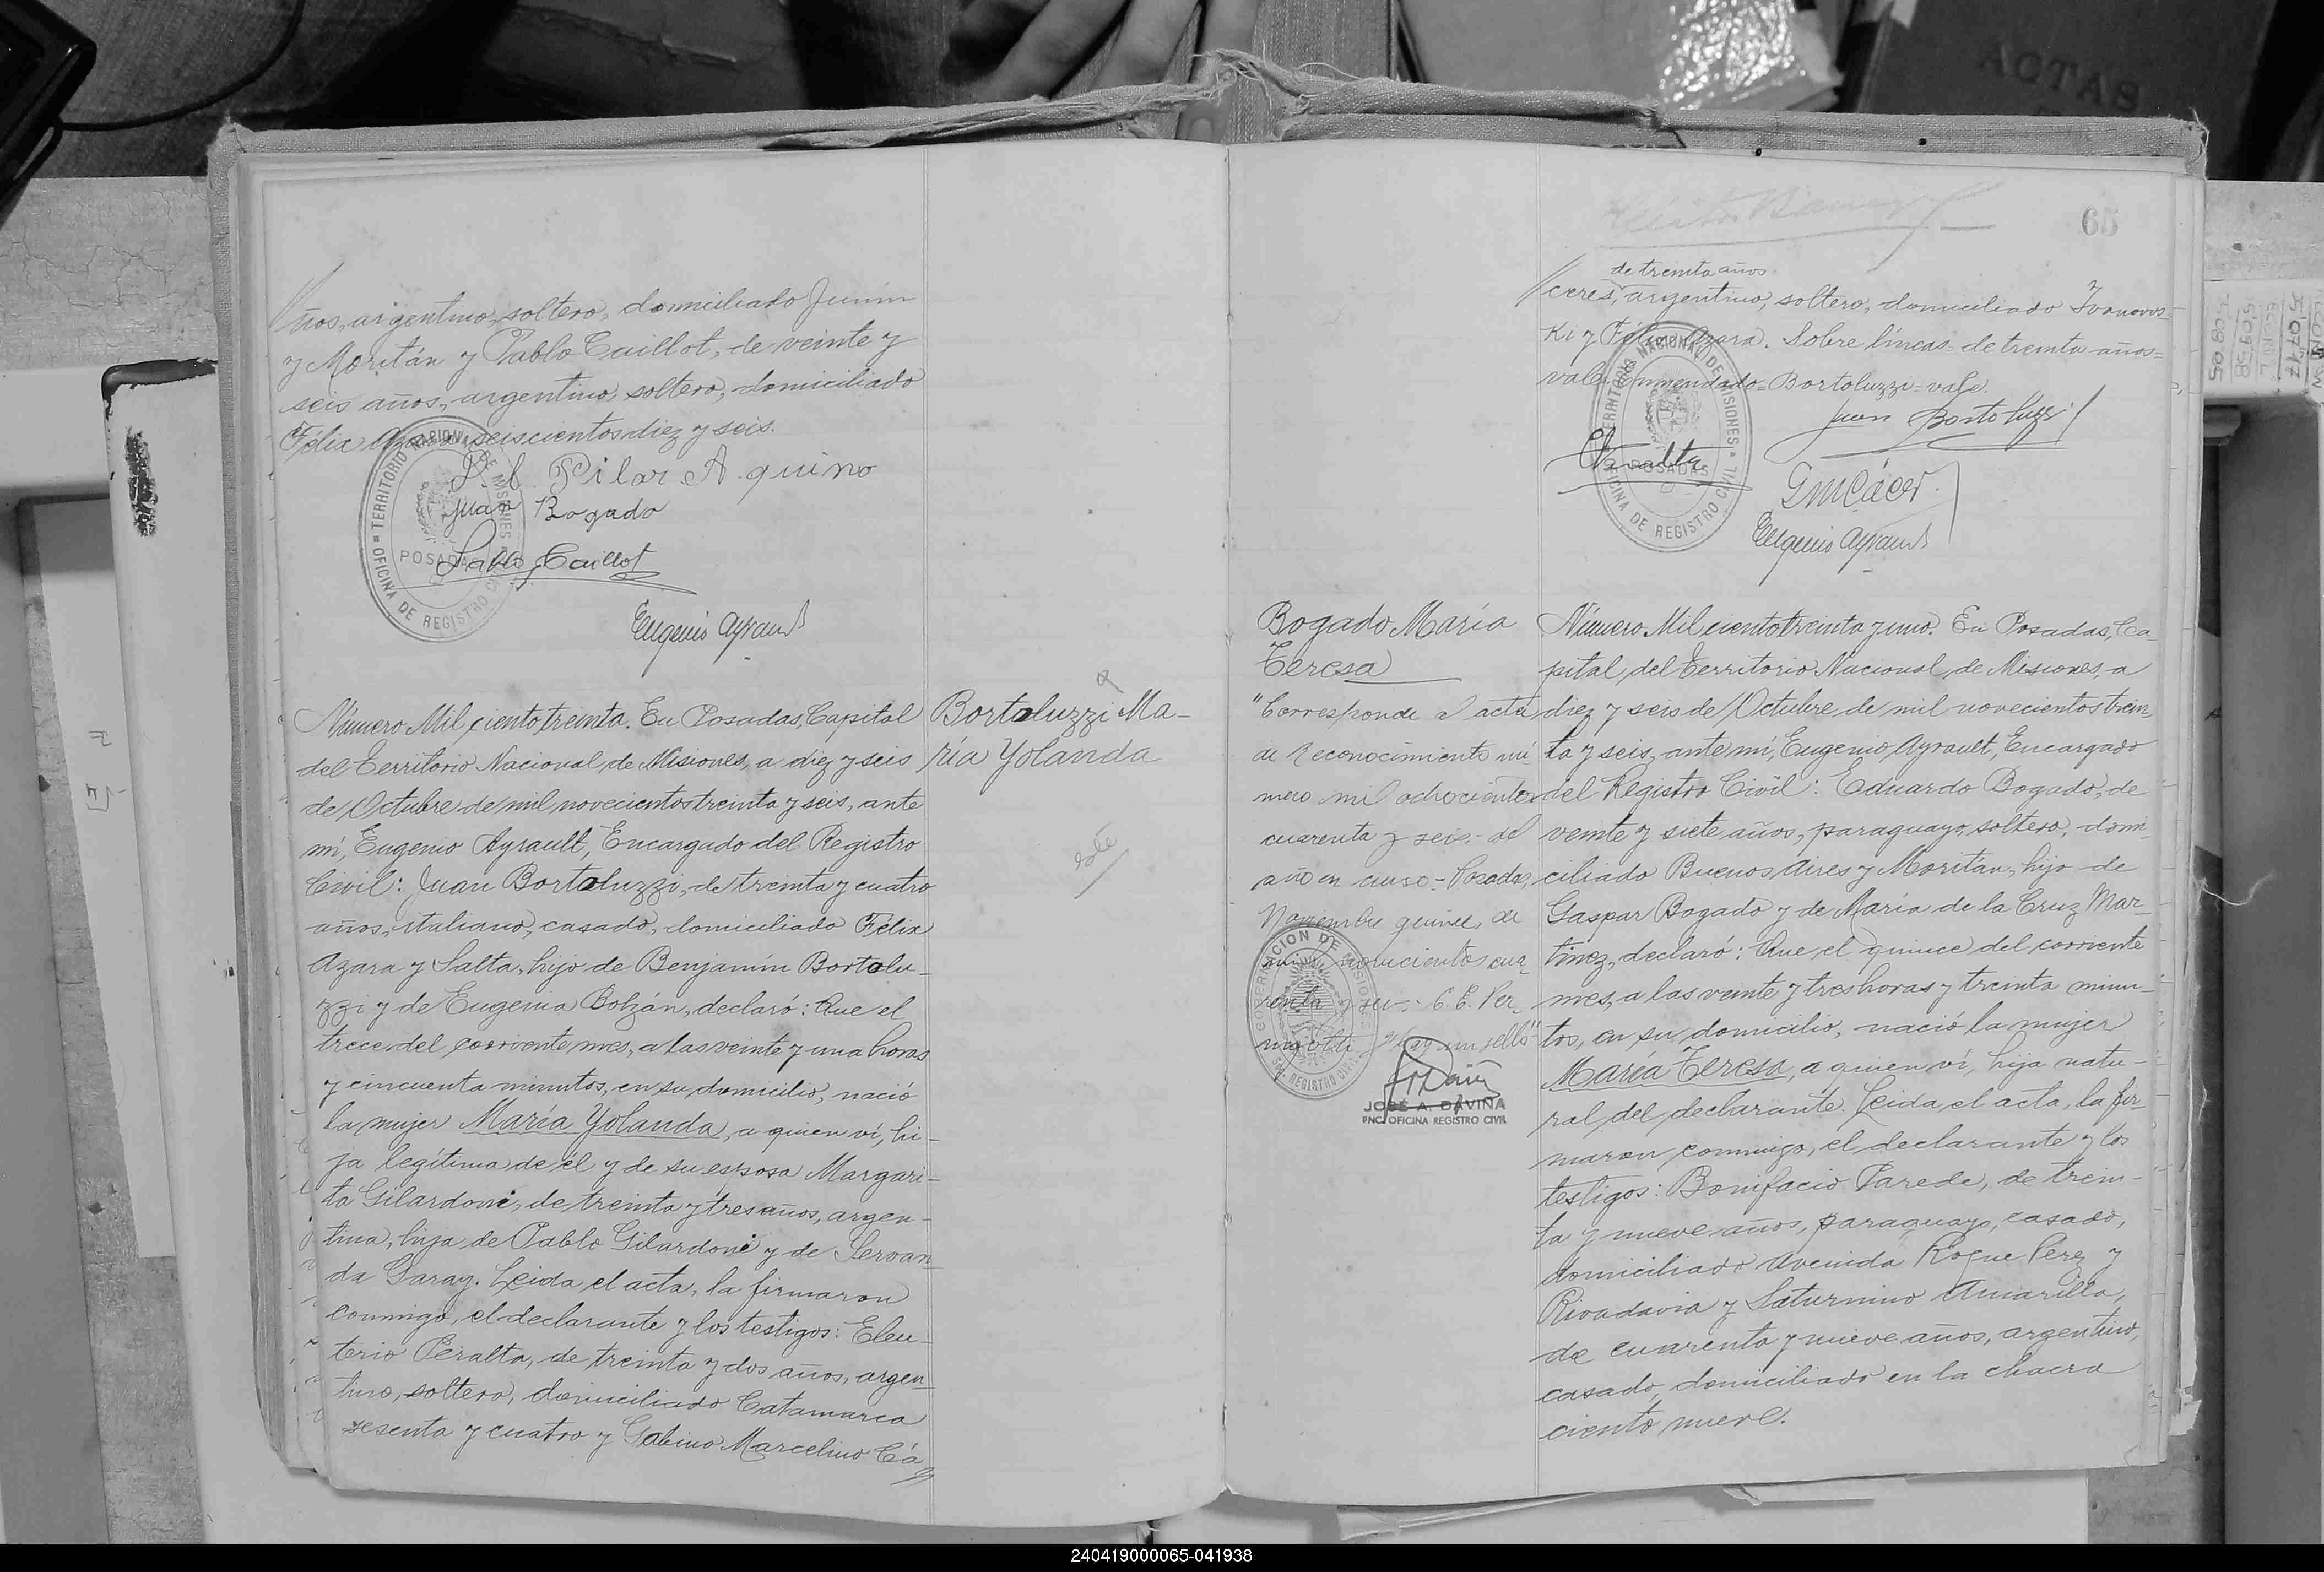 ños, argentino, soltero, domiciliado Junín
y Moritán y Pablo Caillot, de veinte y
seis años, argentino, soltero, domiciliado
Félix Azara seiscientos diez y seis.
Pilar Aquino
Juan Bogado
Pablo Caillot
Eugenio Ayrault
TERRITORIO NACIONAL DE MISIONES
POSADAS
OFICINA DE REGISTRO CIVIL
Bortoluzzi Ma-
ría Yolanda
Número Mil ciento treinta. En Posadas, Capital
del Territorio Nacional de Misiones, a diez y seis
de Octubre de mil novecientos treinta y seis, ante
mí, Eugenio Ayrault, Encargado del Registro
Civil: Juan Bortoluzzi, de treinta y cuatro
años, italiano, casado, domiciliado Félix
Azara y Salta, hijo de Benjamín Bortolu-
zzi y de Eugenia Bolzán, declaró: Que el
trece del corriente mes, a las veinte y una horas
y cincuenta minutos, en su domicilio, nació
la mujer María Yolanda, a quien ví, hi-
ja legítima de él y de su esposa Margari-
ta Gilardoni, de treinta y tres años, argen-
tina, hija de Pablo Gilardoni y de Servan
da Garay. Leida el acta, la firmaron
conmigo, el declarante y los testigos: Eleu-
terio Peralta, de treinta y dos años, argen-
tino, soltero, domiciliado Catamarca
sesenta y cuatro y Gabino Marcelino Cá
65
de treinta años
ceres, argentino, soltero, domiciliado Ivanovos-
ki y Félix Azara. Sobre líneas=de treinta años=
vale. Enmendado=Bortoluzzi=vale.
Juan Bortoluzzi
EPeralta
GMCácer
Eugenio Ayrault
TERRITORIO NACIONAL DE MISIONES
POSADAS
OFICINA DE REGISTRO CIVIL
Bogado María
Teresa
"Corresponde al acta
de reconocimiento nú
mero mil ochocientos
cuarenta y seis.- del
año en curso.- Posadas,
Noviembre quince de
mil novecientos cua
renta y seis.-
Hay un sello"
GOBERNACION DE MISIONES
REGISTRO CIVIL
JOSÉ A. DAVIÑA
ENC. OFICINA REGISTRO CIVIL
Número Mil ciento treinta y uno. En Posadas, Ca-
pital del Territorio Nacional de Misiones, a
diez y seis de Octubre de mil novecientos trein-
ta y seis, ante mí, Eugenio Ayrault, Encargado
del Registro Civil: Eduardo Bogado, de
veinte y siete años, paraguayo, soltero, domi-
ciliado Buenos Aires y Moritán, hijo de
Gaspar Bogado y de María de la Cruz Mar-
tinez, declaró: Que el quince del corriente
mes, a las veinte y tres horas y treinta minu-
tos, en su domicilio, nació la mujer
María Teresa, a quien ví, hija natu-
ral del declarante. Leida el acta, la fir-
maron conmigo, el declarante y los
testigos: Bonifacio Parede, de trein-
ta y nueve años, paraguayo, casado,
domiciliado Avenida Roque Perez y
Rivadavia y Saturnino Amarilla,
de cuarenta y nueve años, argentino,
casado, domiciliado en la chacra
ciento nueve.
240419000065-041938